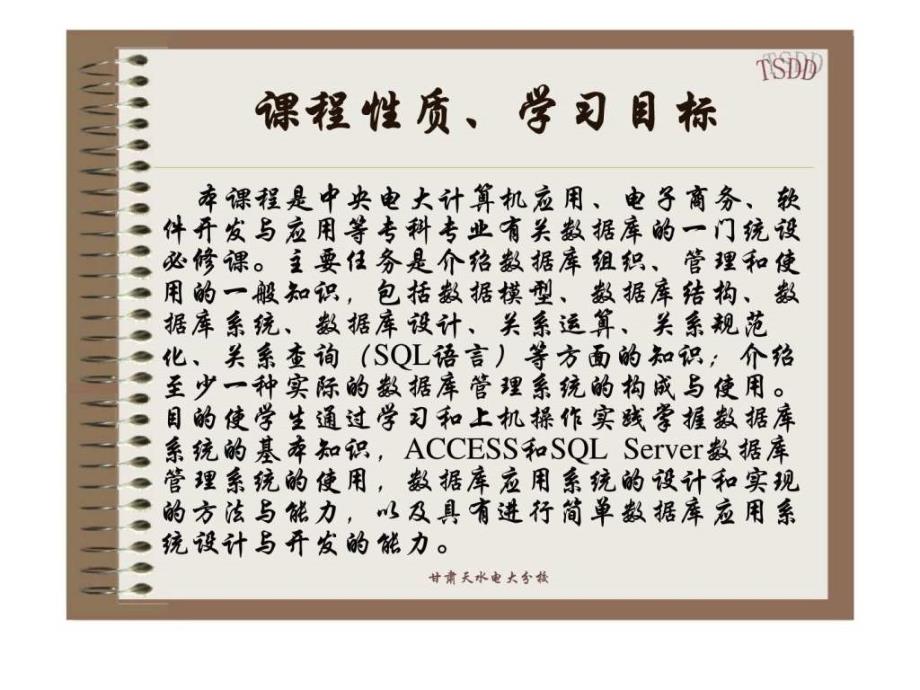 TSDD
课程性质、学习目标
本课程是中央电大计算机应用、电子商务、软
件开发与应用等专科专业有关数据库的一门统设
必修课。主要任务是介绍数据库组织、管理和使
用的一般知识，包括数据模型、数据库结构、数
据库系统、数据库设计、关系运算、关系规范
化、关系查询（SQL语言）等方面的知识；介绍
至少一种实际的数据库管理系统的构成与使用。
目的使学生通过学习和上机操作实践掌握数据库
系统的基本知识，ACCESS和SQL Server数据库
管理系统的使用，数据库应用系统的设计和实现
的方法与能力，以及具有进行简单数据库应用系
统设计与开发的能力。
甘肃天水电大分校